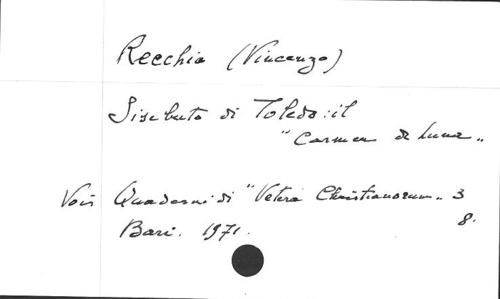 Recchia (Vincenzo)
Sisebuto di Toledo: il
"Carmen de Luna"
Voir Quaderni di "Vetera Christianorum" 3
Bari. 1971. 8.